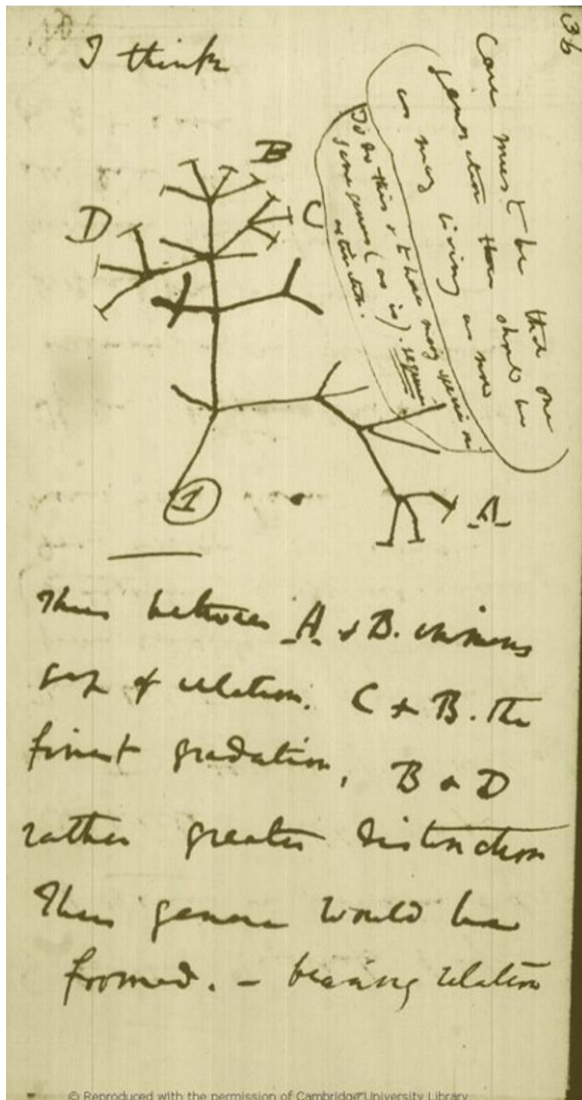 36
I think
Case must be that one
generation then should be
as many living as now
To do this & to have many species in
same genus (as is). requires
extinction.
B
D
C
1
A
Thus between A. & B. immens
gap of relation. C & B. the
finest gradation, B & D
rather greater distinction
Thus genera would be
formed. — bearing relation
© Reproduced with the permission of Cambridge University Library